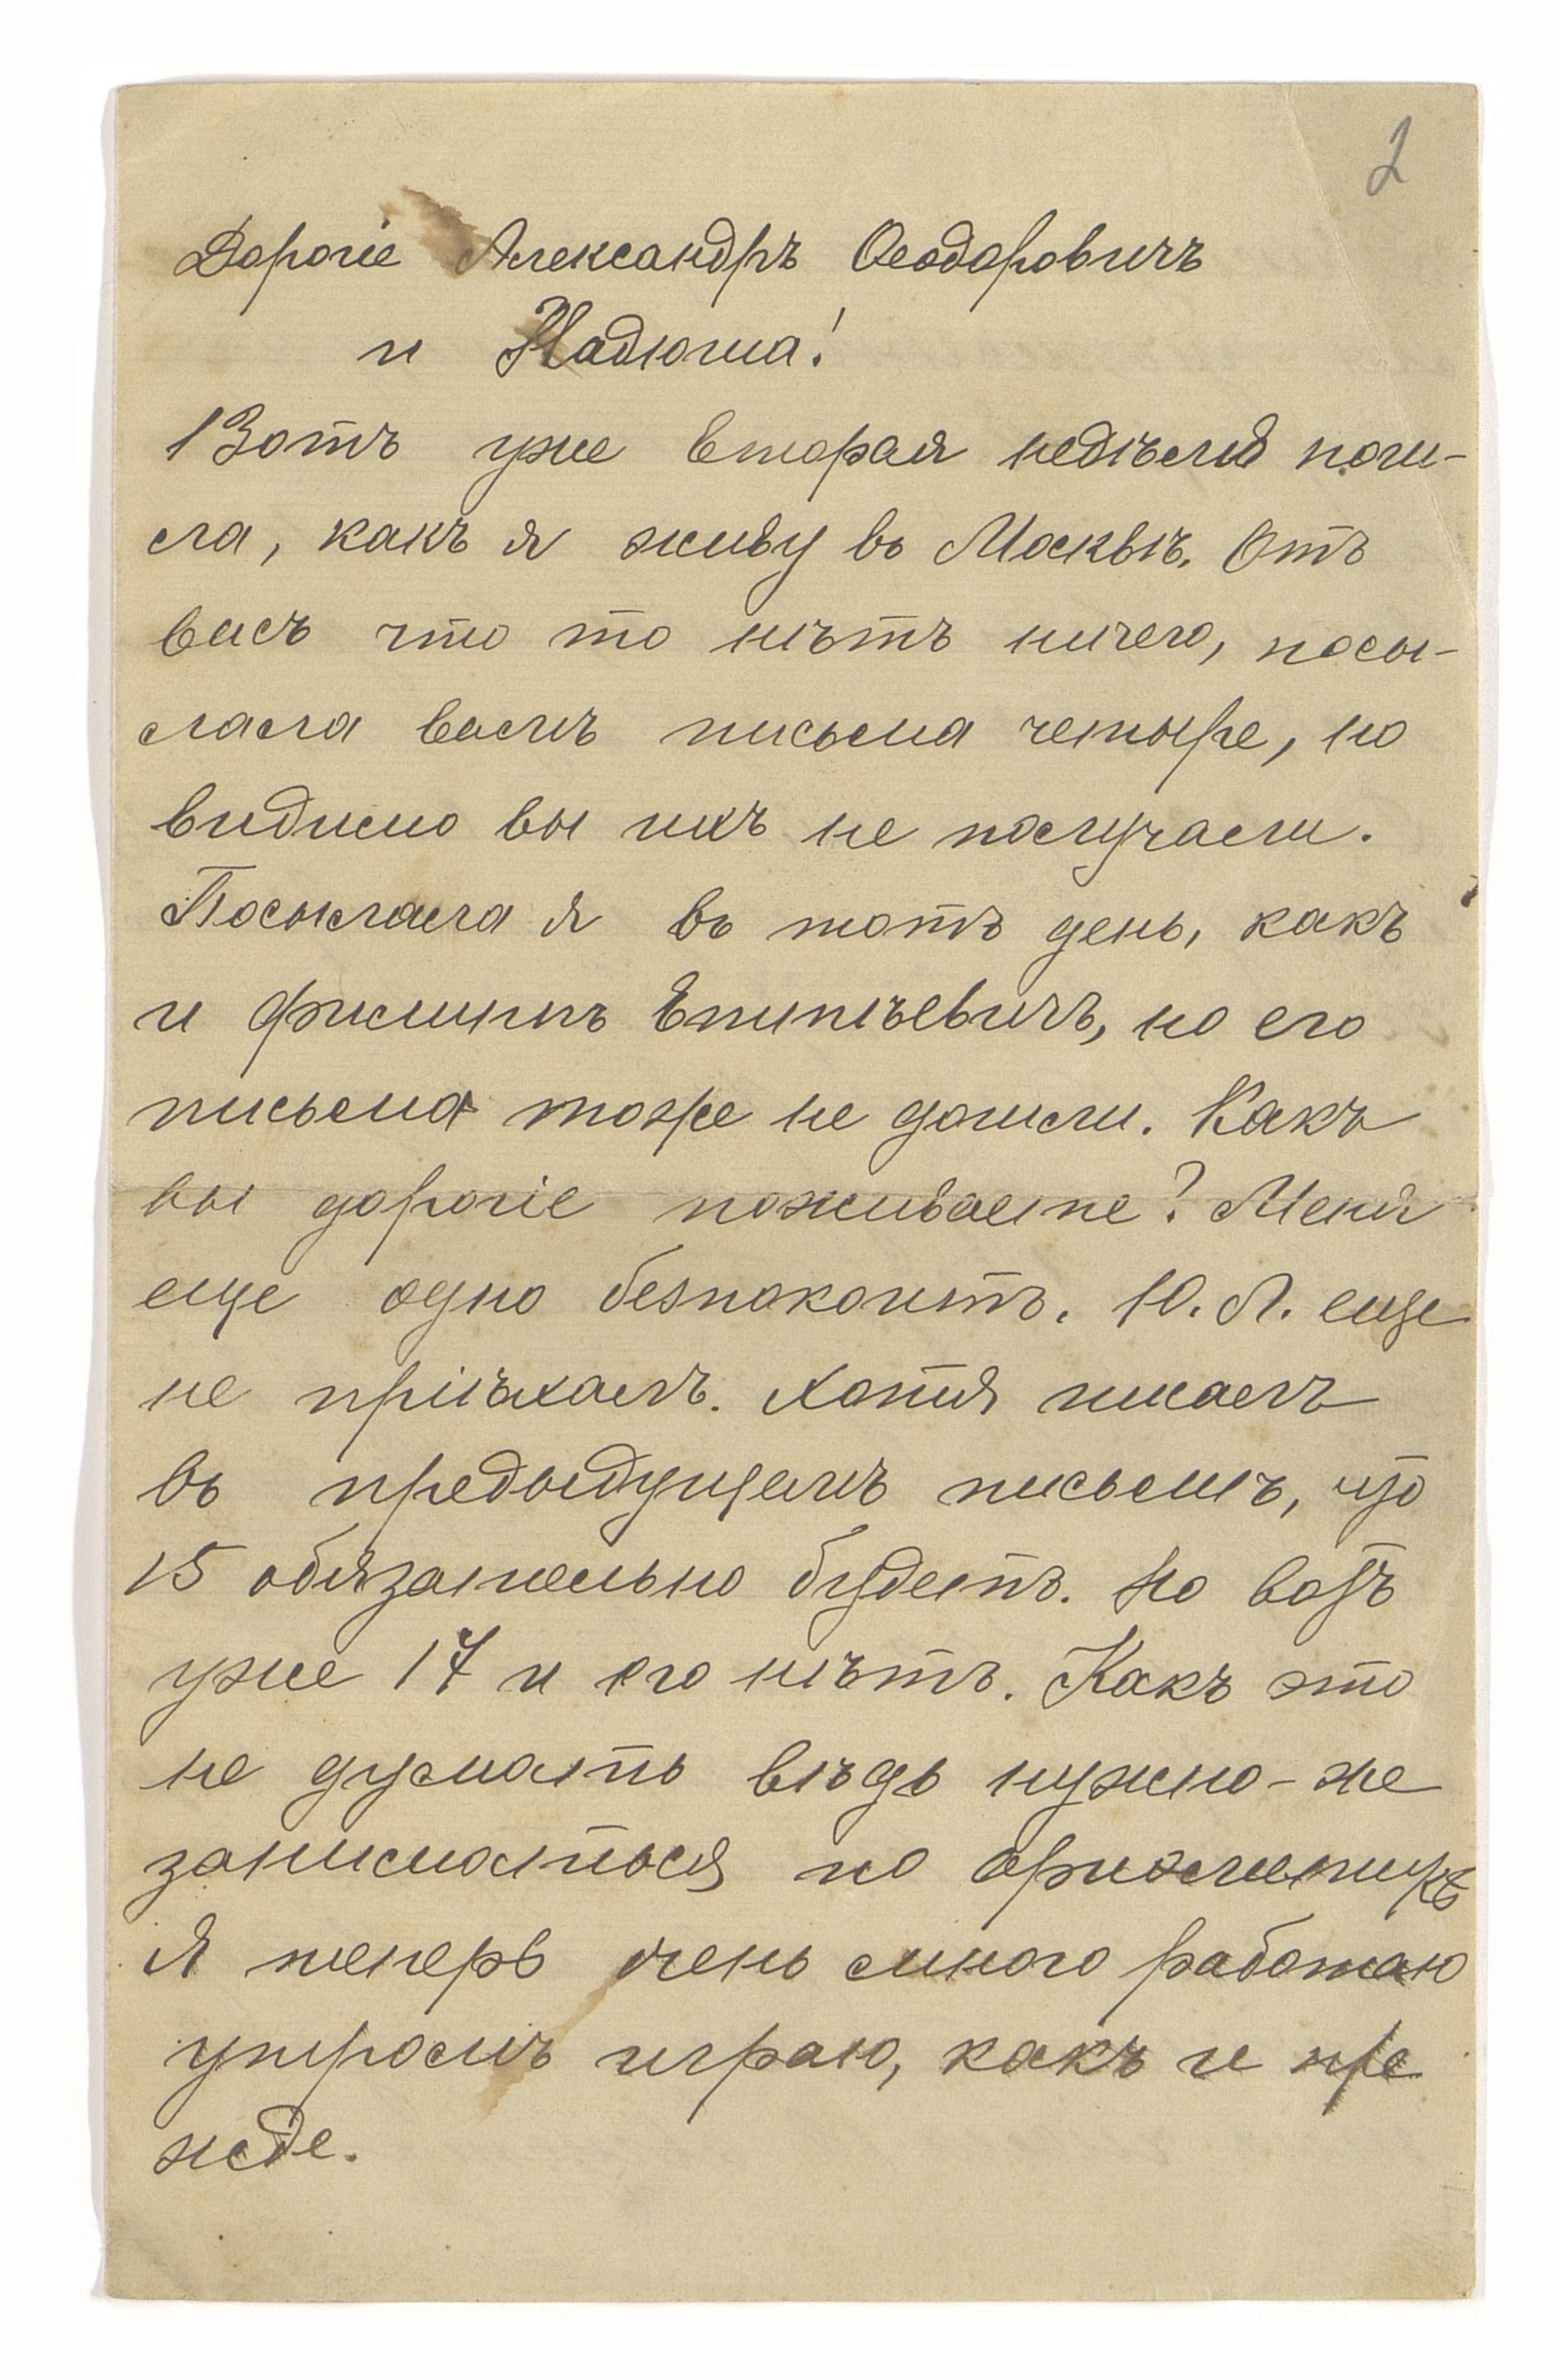 2
Дорогіе Александръ Ѳеодоровичъ
и Надюша!
Вотъ уже вторая недѣля пош-
ла, какъ я живу въ Москвѣ. Отъ
васъ что то нѣтъ ничего, посы-
лала вамъ письма четыре, но
видимо вы ихъ не получали.
Посылала я въ тотъ день, какъ
и Филиппъ Епитѣевичъ, но его
письма тоже не дошли. Какъ
вы дорогіе поживаете? Меня
еще одно безпокоитъ. Ю. Л. еще
не пріѣхалъ. Хотя писалъ
въ предыдущемъ письмѣ, что
15 обязательно будетъ. Но вотъ
уже 17 и его нѣтъ. Какъ это
не думать вѣдь нужно-же
заниматься по ариѳметикѣ
Я теперь очень много работаю
утромъ играю, какъ и пре
жде.